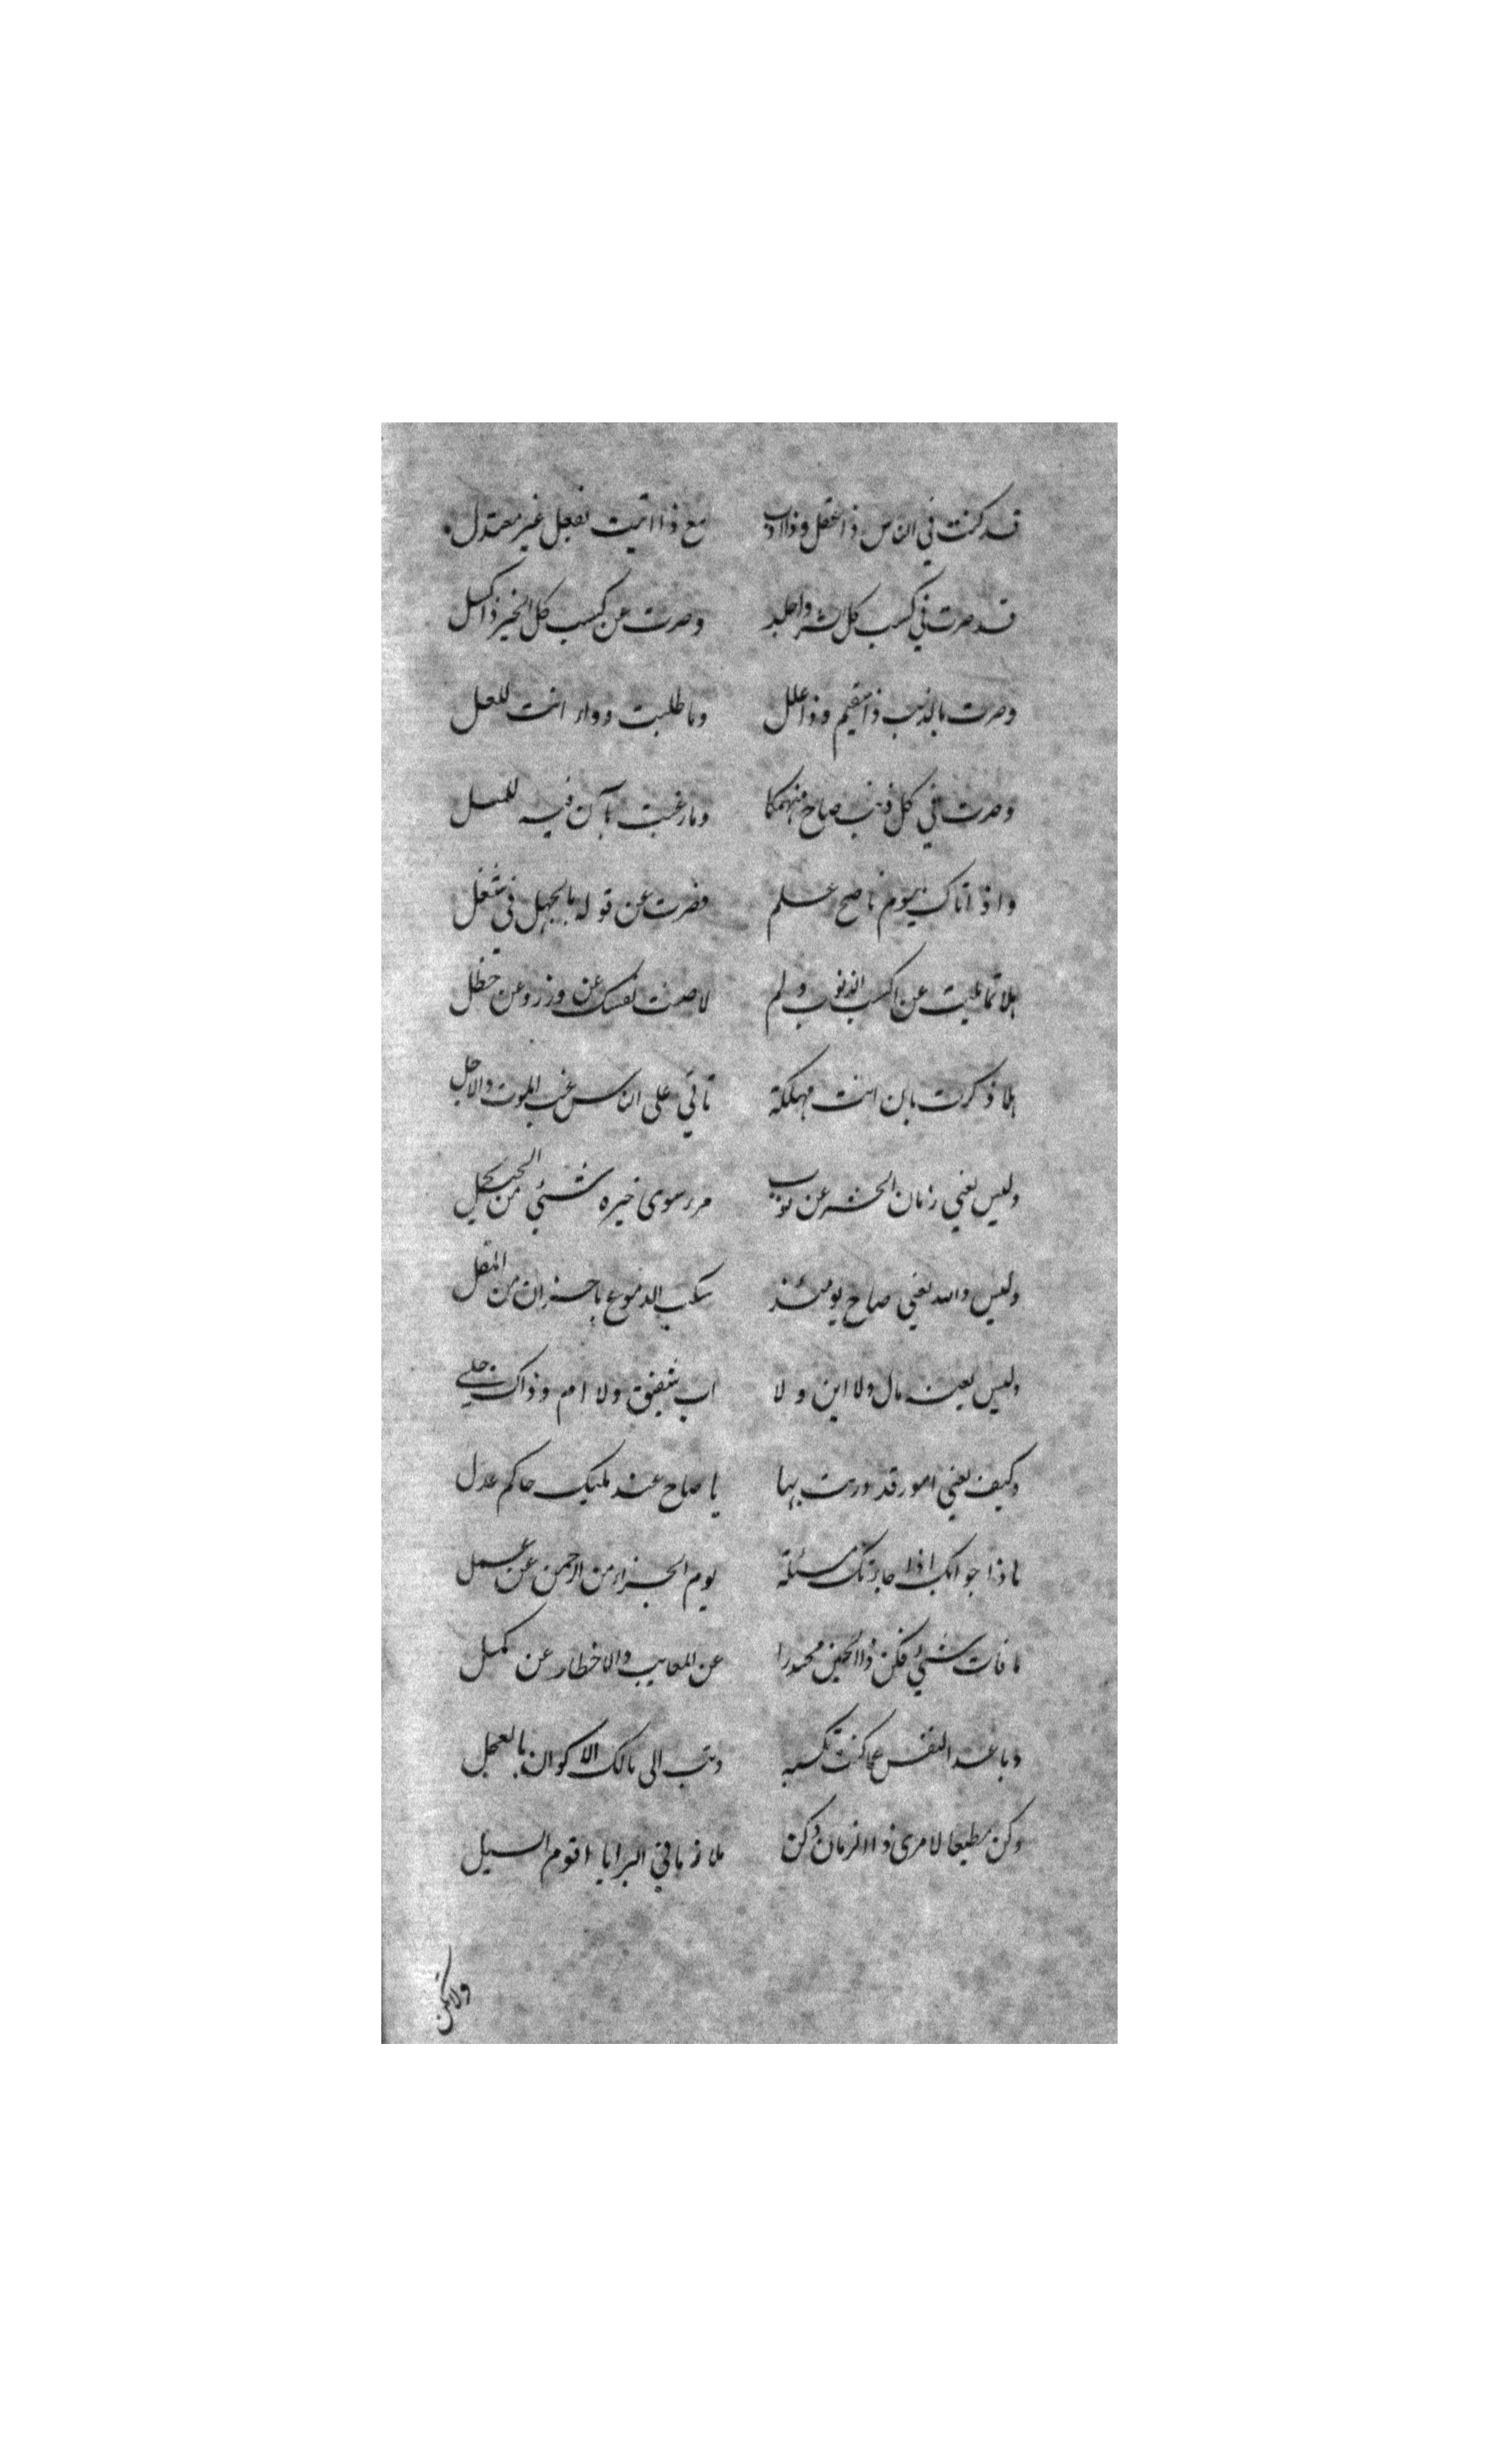 قد كنت في الناس ذا عقل وذا ادب مع ذا اتيت بفعل غير معتدل
قد صرت في كسب كل شر واجلد وصرت عن كسب كل الخير ذا كسل
وصرت بالذنب ذا سقيم وذا علل وما طلبت دواء انت للعلل
وصرت في كل ذنب صاح منهمكا وما رغبت بآن فيه للمسل
واذا اتاك بيوم ناصح علم فصرت عن قوله بالجهل في شغل
هلا تماعيت عن كسب الذنوب ولم لا صنت نفسك عن وزر وعن خطل
هلا ذكرت بان انت مهلكة تأتي على الناس غب الموت والاجل
وليس يغني زمان الحشر عن نوب مرء سوى خيره شئ من الحيل
وليس والله يغني صاح يومئذ سكب الدموع باحزان من المقل
وليس يعينه مال ولا ابن ولا اب شفيق ولا ام وذاك جلي
وكيف يغني امور قد دريت بها يا صاح عند مليك حاكم عدل
ماذا جوابك اذا جاءتك مسئلة يوم الجزاء من الرحمن عن عمل
ما فات شئ فكن ذا الحين محذرا عن المعايب والاخطار عن كمل
وباعد النفس عما كنت تكسبه وتب الى مالك الاكوان بالعجل
وكن مطيعا لامرى ذا الزمان وكن ملازما في البرايا اقوم السبل
ولاتكن